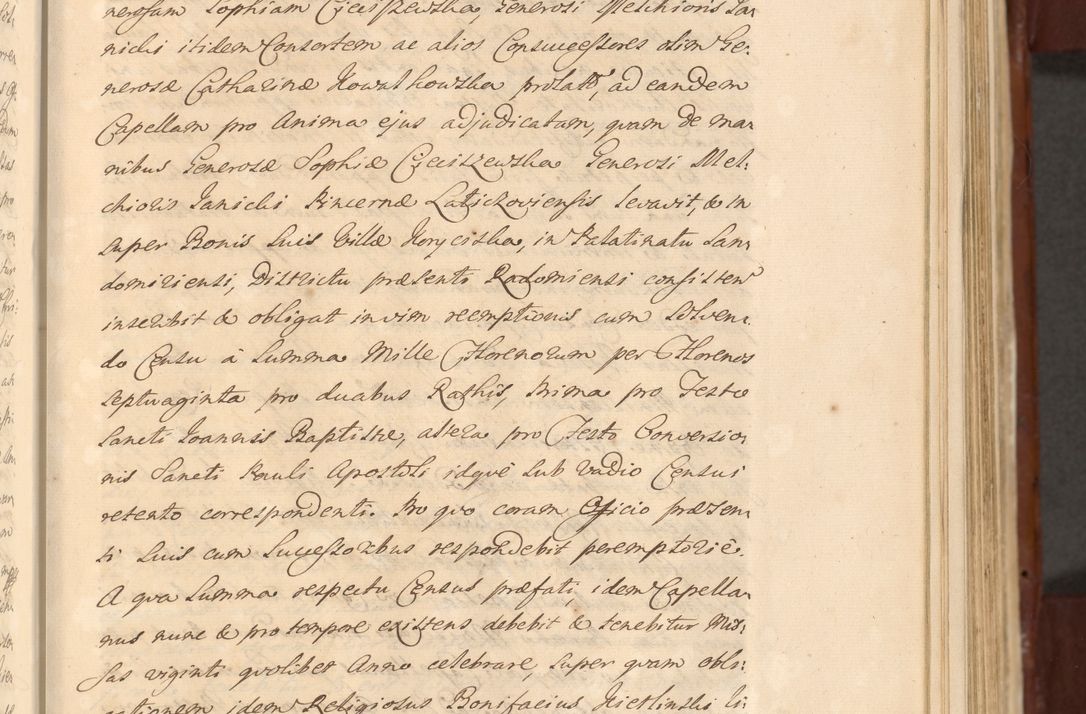 nerosam Sophiam Cieciszewska, Generosi Melchioris Ja-
nicki itidem Consortem ac alios Consuccessores olim Ge:
nerosæ Catharinæ Kowalkowska prolat, ad eandem
Capellam pro Anima ejus adjudicatam, quam de ma-
nibus Generosæ Sophiæ Cieciszewska Generosi Mel:
chioris Janicki Pincernæ Latickoviensis levavit, & in
super Bonis suis Villæ Koryciska, in Palatinatu San-
domiriensi, Districtu præsenti Radomiensi consisten
inscribit & obligat in vim reemptionis cum solven-
do Censu à Summa Mille Florenorum per Florenos
septuaginta pro duabus Rathis, Prima pro Festo
Sancti Joannis Baptistæ, altera pro Festo Conversio-
nis Sancti Pauli Apostoli idquè sub vadio Censui
retento correspondenti. Pro quo coram Officio præsen-
ti suis cum Successoribus respondebit peremptoriè.
A qua Summa respectu Census præfati, idem Capella-
nus nunc & pro tempore existens debebit & tenebitur Mis-
sas viginti quolibet Anno celebrare, super quam obli:
gationem idem Religiosus Bonifacius Kietlinski li: